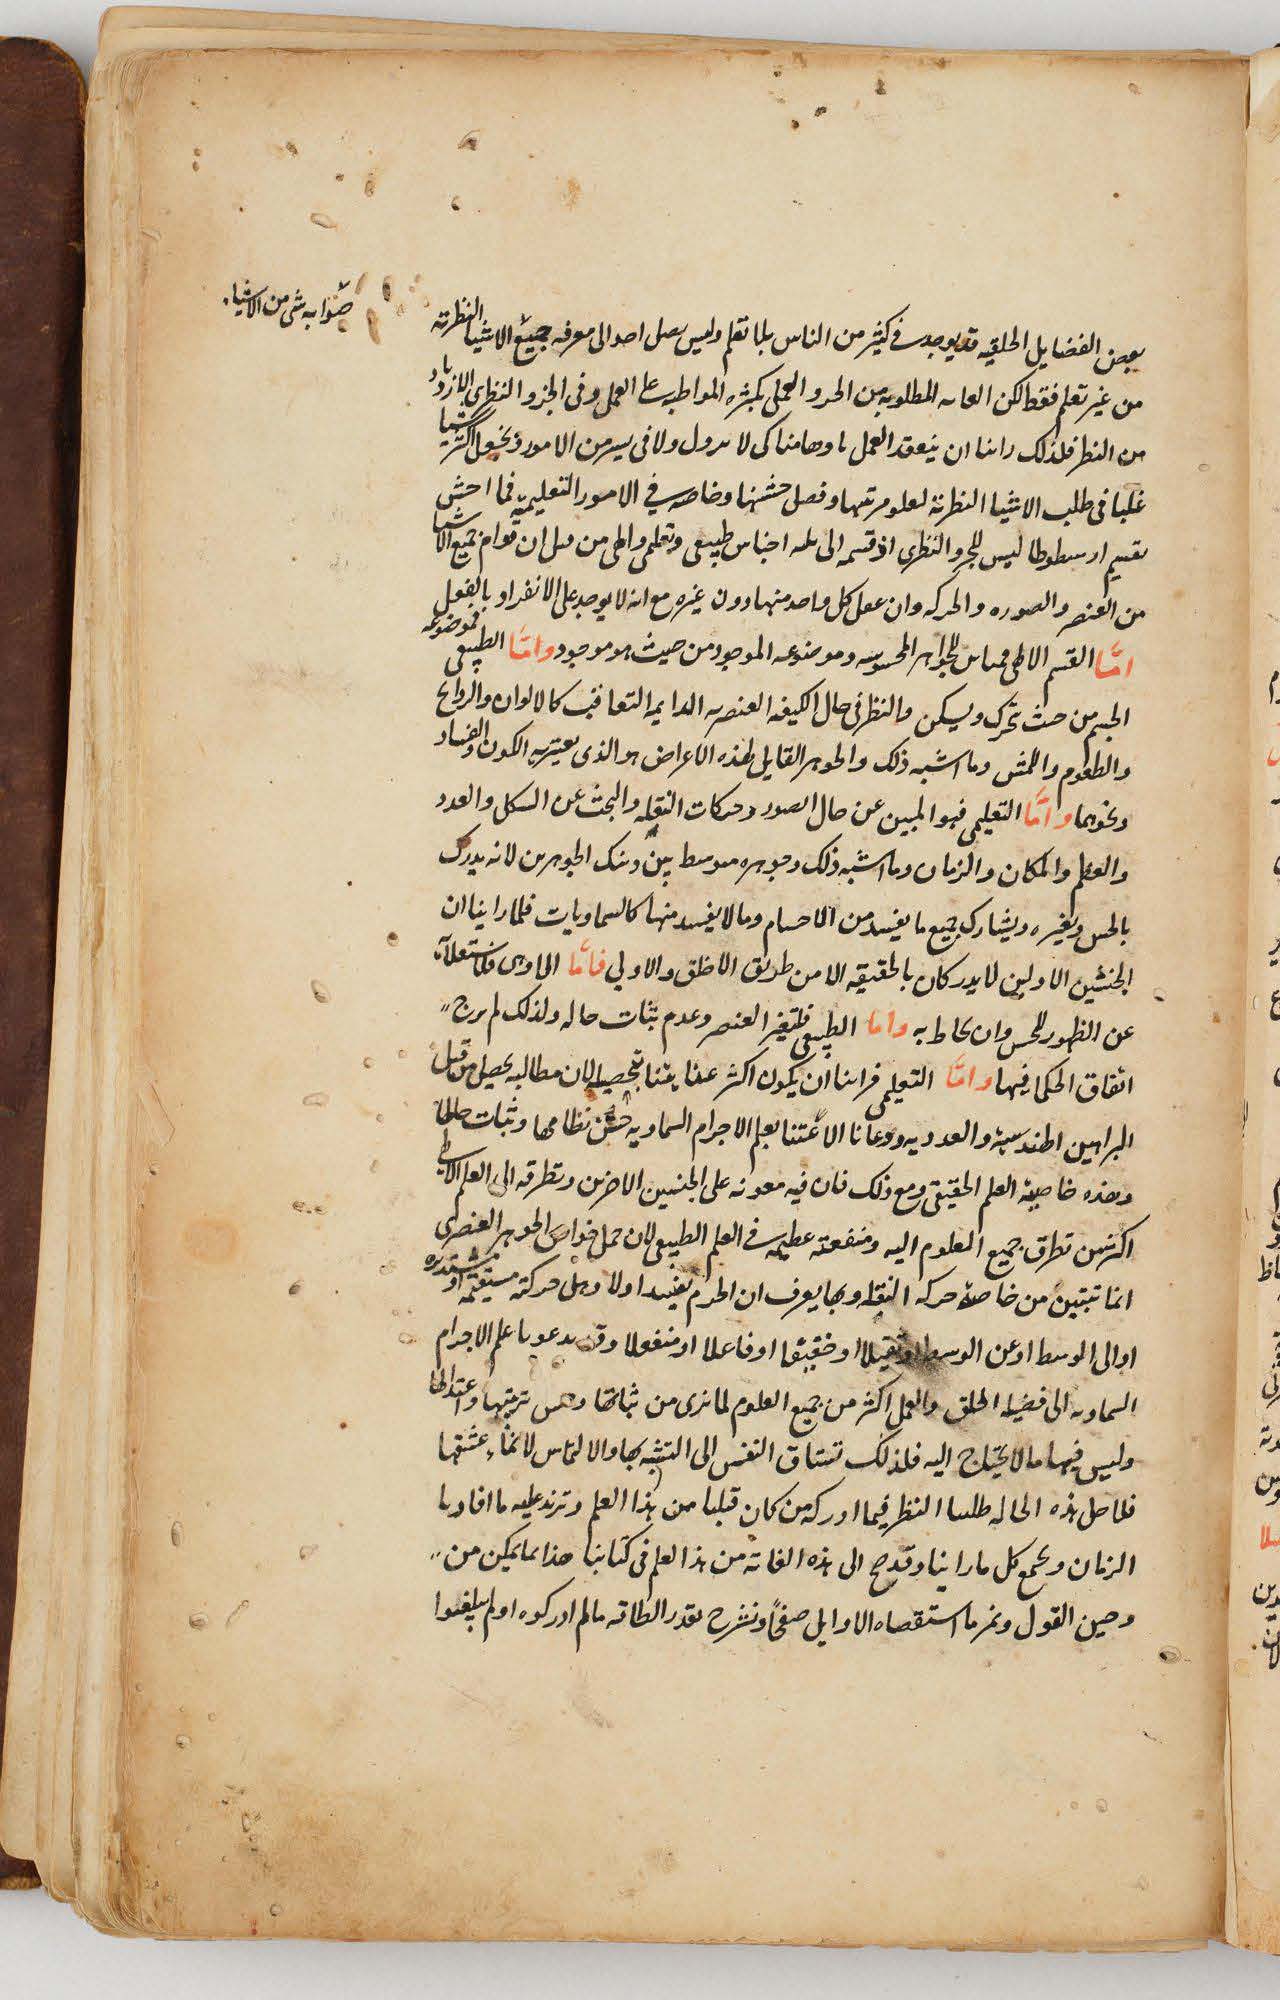 صوابه شى من الاشياء
بعض الفضايل الخلقيه قد يوجد فى كثير من الناس بلا تعلم وليس يصل احد الى معرفه جميع الاشيا النظرية
من غير تعلم فقط لكن الغايه المطلوبه من الجزو العملى بكثره المواظبه على العمل وفى الجزو النظرى الازدياد
من النظر فلذلك راينا ان نعقد العمل باوهامنا كى لا نزول ولا فى يسير من الامور ونجعل اكثر
فى طلب الاشيا النظرية لعلو مرتبتها وفضل حسنها وخاصه فى الامور التعليمية فما احسن
تقسيم ارسطوطاليس للجزو النظرى اذ قسمه الى ثلثه اجناس طبيعى وتعليمى والهى من قبل ان قوام جميع الاشيا
من العنصر والصوره والحركه وان عقل كل واحد منها دون غيره مع انه لا يوجد على الانفراد بالفعل
امّا القسم الالهى مباين للجواهر المحسوسه وموضوعه الموجود من حيث هو موجود وامّا الطبيعى فموضوعه
الجسم من حيث يتحرك ويسكن والنظر فى حال الكيفيه العنصريه الدايمه التعاقب كالالوان والروايح
والطعوم واللمس وما اشبه ذلك والجوهر القابل لهذه الاعراض هو الذى يعتريه الكون والفساد
ونحوهما وامّا التعليمى فهو المبين عن حال الصور وحركات النقله والبحث عن الشكل والعدد
والعظم والمكان والزمان وما اشبه ذلك وجوهره متوسط بين ذينك الجوهرين لانه يدرك
بالحس وبغيره ويشارك جميع ما يفسد من الاجسام وما لا يفسد منها كالسماويات فلما راينا ان
الجنسين الاولين لا يدركان بالحقيقه الا من طريق الاخلق والاولى فامّا الالهى فلاستعلائه
عن الظهور للحس وان يحاط به وامّا الطبيعى فلتغير العنصر وعدم ثبات حاله ولذلك لم يرج
اتفاق الحكما فيها وامّا التعليمى فراينا ان يكون اكثر عنايتنا بتحصيله لان مطالبه يحصل من قبل
البراهين الهندسية والعدديه ودعانا الاعتنا بعلم الاجرام السماويه حسن نظامها وثبات حالها
وهذه خاصية العلم الحقيقى ومع ذلك فان فيه معونه على الجنسين الاخرين وتطرقه الى العلم الالهى
اكثر من تطرق جميع العلوم اليه ومنفعته عظيمه فى العلم الطبيعى لان جل خواص الجوهر العنصرى
انما تتبين من خاصة حركه النقله وبها يعرف ان الجرم يفسد او لا وهل حركته مستقيمه او مستديره
او الى الوسط او عن الوسط او ثقيلا او خفيفا او فاعلا او منفعلا وقد يدعونا علم الاجرام
السماويه الى فضيله الخلق والعمل اكثر من جميع العلوم لما نرى من ثباتها وحسن ترتيبها واعتدالها
وليس فيها ما لا يحتاج اليه فلذلك تشتاق النفس الى التشبه بها والالتماس لانحا عشقها
فلاجل هذه الحاله طلبنا النظر فيما ادركه من كان قبلنا من هذا العلم ونزيد عليه ما افادنا
الزمان ونجمع كل ما راينا وقد صح الى هذه الغايه من هذا العلم فى كتابنا هذا بما يمكن من
وجيز القول ونمر ما استقصاه الاوايل صفحًا ونشرح بقدر الطاقه ما لم ادركوه او لم يبلغوا